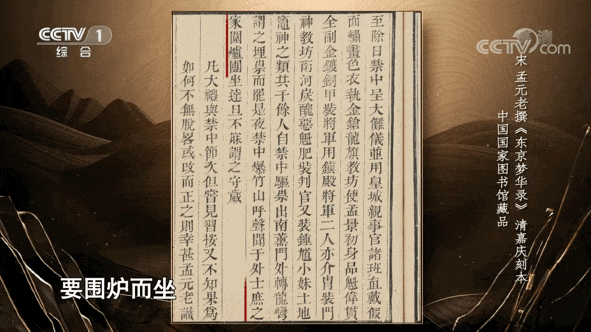 CCTV 1
综合
CCTV.com
至除日禁中呈大儺儀並用皇城親事官諸班直戴假
面繡畫色衣執金鎗龍旗教坊使孟景初身品魁偉貫
全副金鍍銅甲裝將軍用鎮殿將軍二人亦介冑裝門
神教坊南河炭醜惡魁肥裝判官又裝鍾馗小妹土地
竈神之類共千餘人自禁中驅祟出南薰門外轉龍彎
謂之埋祟而罷是夜禁中爆竹山呼聲聞于外士庶之
家圍爐團坐達旦不寐謂之守歲
凡大禮與禁中節次但嘗見習按又不知果為
如何不無脫略或改而正之則幸甚孟元老識
宋 孟元老撰《东京梦华录》 清嘉庆刻本
中国国家图书馆藏品
要围炉而坐